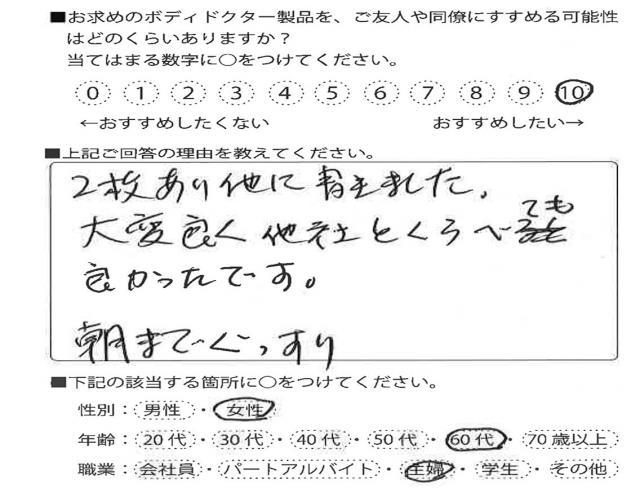 ■お求めのボディドクター製品を、ご友人や同僚にすすめる可能性
はどのくらいありますか？
当てはまる数字に○をつけてください。
0 1 2 3 4 5 6 7 8 9 10
←おすすめしたくない おすすめしたい→
■上記ご回答の理由を教えてください。
2枚あり他に ました。
大変良く他社とくらべても
良かったです。
朝までぐっすり
■下記の該当する箇所に○をつけてください。
性別：男性・女性
年齢：20代・30代・40代・50代・60代・70歳以上
職業：会社員・パートアルバイト・主婦・学生・その他